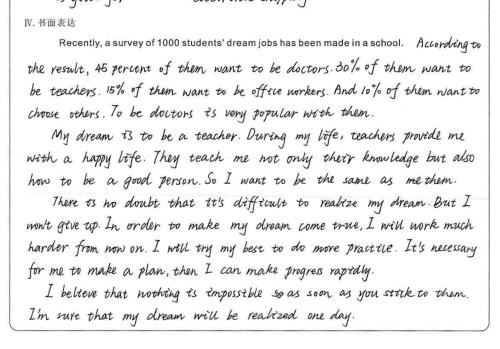 IV. 书面表达
Recently, a survey of 1000 students' dream jobs has been made in a school. According to
the result, 45 percent of them want to be doctors. 30% of them want to
be teachers. 15% of them want to be office workers. And 10% of them want to
choose others. To be doctors is very popular with them.
My dream is to be a teacher. During my life, teachers provide me
with a happy life. They teach me not only their knowledge but also
how to be a good person. So I want to be the same as me them.
There is no doubt that it's difficult to realize my dream. But I
won't give up. In order to make my dream come true, I will work much
harder from now on. I will try my best to do more practice. It's necessary
for me to make a plan, then I can make progress rapidly.
I believe that nothing is impossible as soon as you stick to them.
I'm sure that my dream will be realized one day.